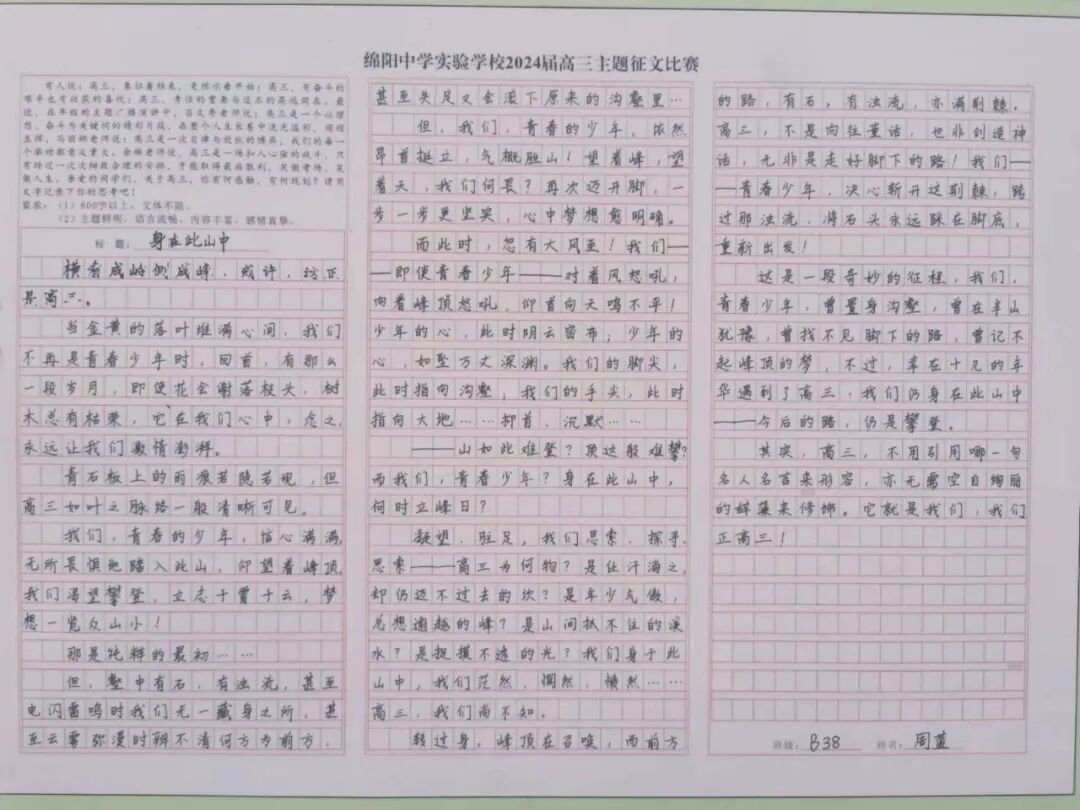 绵阳中学实验学校2024届高三主题征文比赛
有人说:高三,象征着结束,更预示着开始;高三,有奋斗的
艰辛也有收获的喜悦;高三,青任的重要与远永的高远同在。最
近,在年级的主题广播演讲中,
高三是一个以理
想、奋斗为关键词的精彩片段,在整个人生长卷中流光溢彩,熠熠
生辉。
老师说:高三是一次自律与放纵的博弈,我们的每一
个举动都意义重大。
老师说,高三是一场扣人心弦的战斗,只
有经过一次次细致合理的安排,才能取得最后胜利,笑傲考场,笑
傲人生。亲爱的同学们,关于高三,你有何感触,有何规划?请用
文字记录下你的思考吧!
要求:(1)800字以上,文体不限。
(2)主题鲜明,语言流畅,内容丰富,感情真挚。
标 题: 身在此山中
横看成岭侧成峰,或许,这正
是高三。
当金黄的落叶堆满心间,我们
不再是青春少年时,回首,有那么
一段岁月,即使花会谢落枝头,树
木总有枯荣,它在我们心中,念之,
永远让我们激情澎湃。
青石板上的雨痕若隐若现,但
高三如叶之脉络一般清晰可见。
我们,青春的少年,信心满满,
无所畏惧地踏入此山,仰望着峰顶,
我们渴望攀登,立志干霄十云,梦
想一览众山小!
那是纯粹的最初……
但,壑中有石,有浊流,甚至
电闪雷鸣时我们无一藏身之所,甚
至云雾弥漫时辨不清何方为前方,
甚至失足又会滚下原来的沟壑里…
但,我们,青春的少年,依然
昂首挺立,气概胜山!望着峰,望
着天,我们何畏?再次迈开脚,一
步一步更坚实,心中梦想愈明确。
而此时,忽有大风至!我们—
—即使青春少年——对着风怒吼,
向着峰顶怒吼,仰首向天鸣不平!
少年的心,此时阴云密布;少年的
心,如坠万丈深渊。我们的脚尖,
此时指向沟壑,我们的手尖,此时
指向大地……抑首、沉默……
——山如此难登?顶这般难攀?
而我们,青春少年?身在此山中,
何时立峰日?
凝望、驻足,我们思索、探寻、
思索——高三为何物?是任汗淌之,
却仍迈不过去的坎?是年少气傲,
总想逾越的峰?是山间抓不住的溪
水?是捉摸不透的光?我们身于此
山中,我们茫然、惘然、愤然……
高三,我们尚不知。
转过身,峰顶在召唤,而前方
的路,有石,有浊流,亦满荆棘。
高三,不是向往童话,也非创造神
话,无非是走好脚下的路!我们—
—青春少年,决心斩开这荆棘,踏
过那浊流,将石头永远踩在脚底,
重新出发!
这是一段奇妙的征程,我们,
青春少年,曾置身沟壑,曾在半山
犹豫,曾找不见脚下的路,曾记不
起峰顶的梦,不过,幸在十几的年
华遇到了高三,我们仍身在此山中
——今后的路,仍是攀登。
其实,高三,不用引用哪一句
名人名言来形容,亦无需空自绚丽
的辞藻来修饰。它就是我们,我们
正高三!
班级: B38 姓名: 周蓝